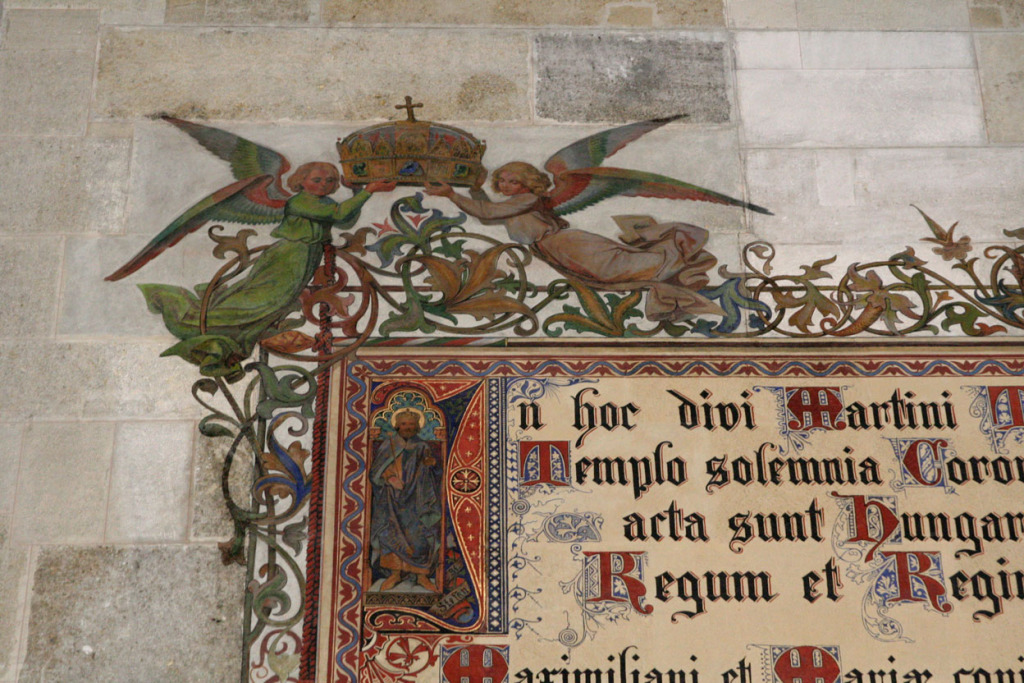 In hoc divi Martini
Templo solemnia Coron
acta sunt Hungar
Regum et Regin
Maximiliani et Mariæ coni